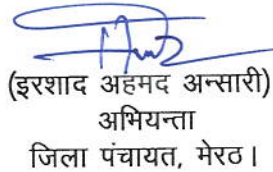 (इरशाद अहमद अन्सारी)
अभियन्ता
जिला पंचायत, मेरठ।